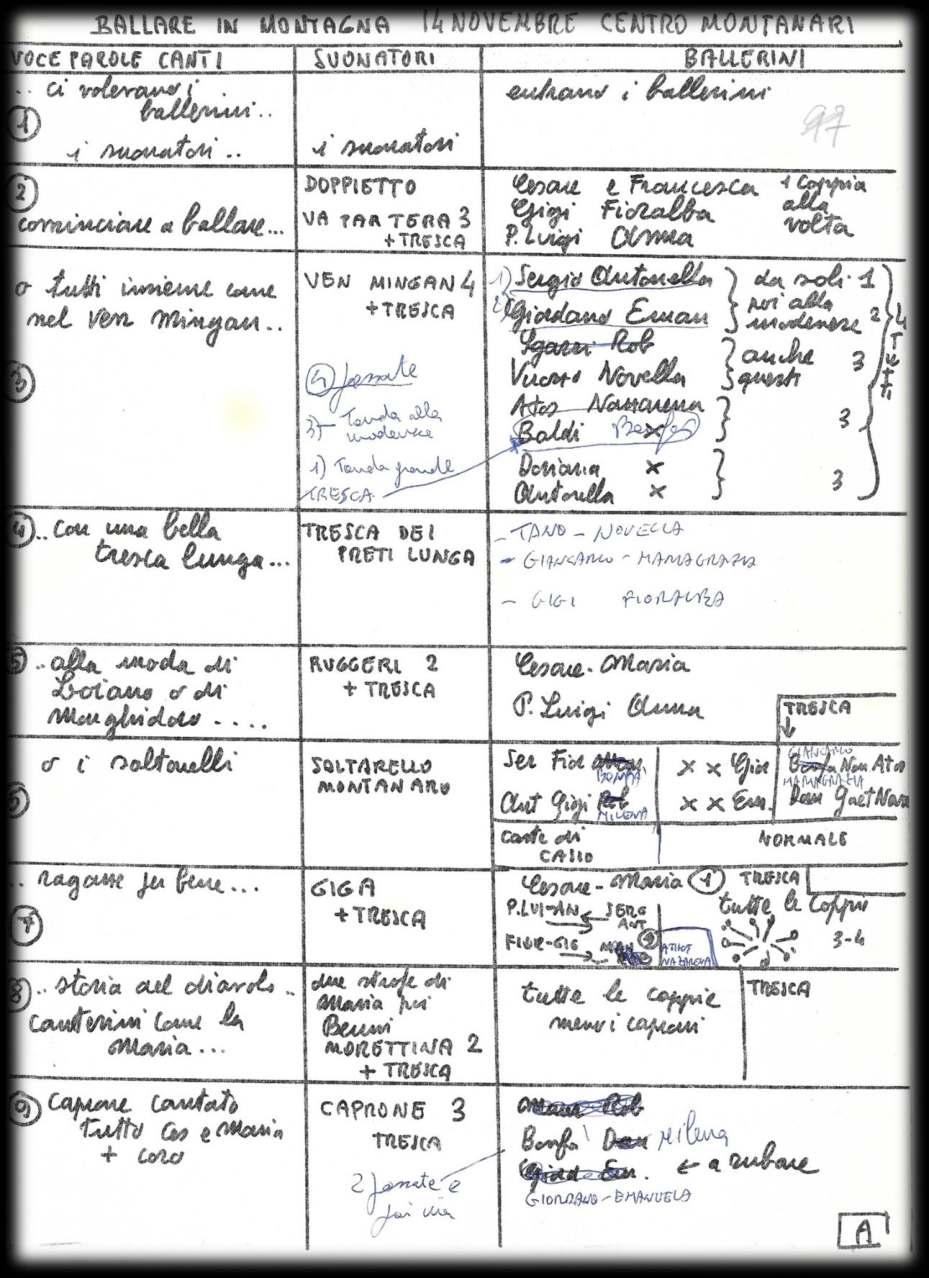 BALLARE IN MONTAGNA 14 NOVEMBRE CENTRO MONTANARI
VOCE PAROLE CANTI SUONATORI BALLERINI
.. ci volevano i
ballerini..
1
i suonatori ..
i suonatori
entrano i ballerini
97
2
cominciare a ballare...
DOPPIETTO
VA PAR TERA 3
+ TRESCA
Cesare e Francesca
Gigi Fioralba
P. Luigi Anna
1 coppia
alla
volta
o tutti insieme come
nel Ven Mingan..
3
VEN MINGAN 4
+ TRESCA
4 passate
3) Tonda alla
modenese
1) Tonda grande
TRESCA
1) Sergio Antonella
2) Giordano Eman
da soli 1
poi alla
modenese 2
Sgarzi Rob
Novella
anche
questi
3
Atos Nazzarena
Baldi x
3
Doriana x
Antonella x
3
4 .. con una bella
tresca lunga...
TRESCA DEI
PRETI LUNGA
- TANO - NOVELLA
- GIANCARLO - MARIAGRAZIA
- GIGI FIORALBA
5 .. alla moda di
Loiano o di
Monghidoro ....
RUGGERI 2
+ TRESCA
Cesare - Maria
P. Luigi Anna
TRESCA
o i saltarelli
6
SALTARELLO
MONTANARO
Ser Fior
Ant Gigi
MILENA
x x Gior
x x Em.
GIANCARLO
Nov Atos
MARIAGRAZIA
Gaet Naza
Caste di
CASIO
NORMALE
.. ragazze per bene...
7
GIGA
+ TRESCA
Cesare - Maria 1
P.LUI-AN SERG
ANT
FIOR-GIG 2
NAZARENA
TRESCA
tutte le coppie
3-4
8 .. storia del diavolo ..
canterini come la
Maria...
due strofe di
Maria poi
MORETTINA 2
+ TRESCA
tutte le coppie
meno i caproni
TRESCA
9 Caprone cantato
tutto Ces e Maria
+ coro
CAPRONE 3
TRESCA
2 passate e
poi via
Bonfa Milena
← a rubare
GIORDANO - EMANUELA
A